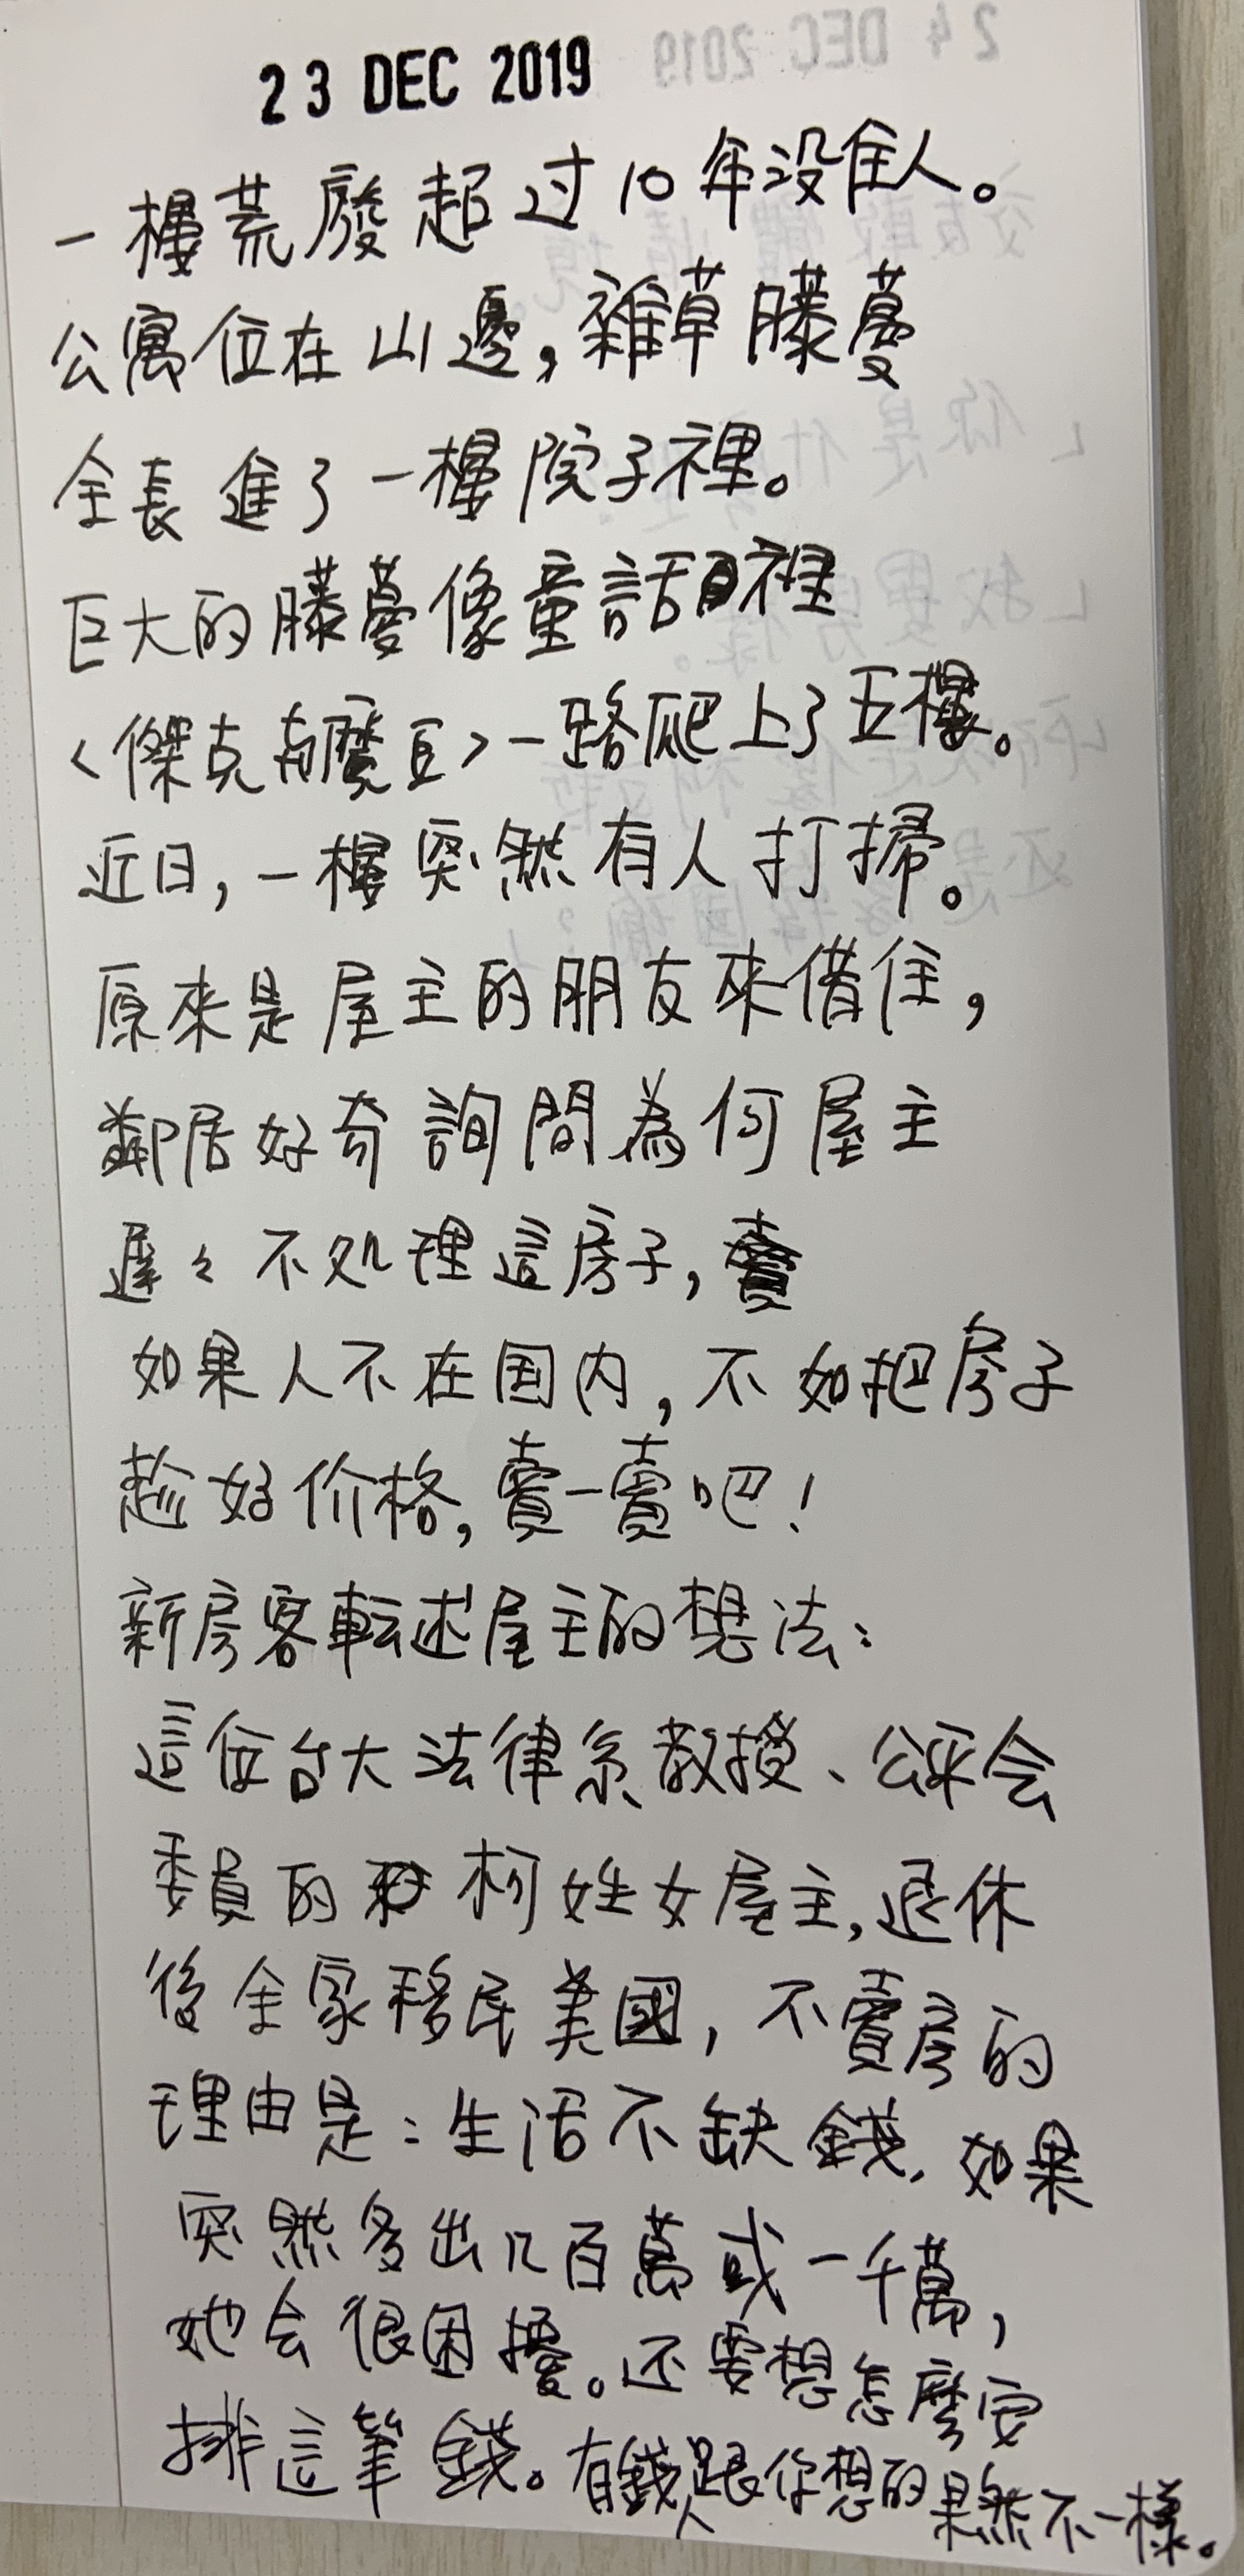 23 DEC 2019
一樓荒廢超过10年没住人。
公寓位在山邊,雜草藤蔓
全長進了一樓院子裡。
巨大的藤蔓像童話裡
<傑克與魔豆>一路爬上了五樓。
近日,一樓突然有人打掃。
原來是屋主的朋友來借住,
鄰居好奇詢問為何屋主
遲々不処理這房子,
如果人不在国内,不如把房子
趁好价格,賣一賣吧!
新房客転述屋主的想法:
這位台大法律系教授、公平会
委員的柯姓女屋主,退休
後全家移民美國,不賣房的
理由是:生活不缺錢,如果
突然多出几百萬或一千萬,
她会很困擾。还要想怎麼安
排這筆錢。有錢人跟你想的果然不一樣。